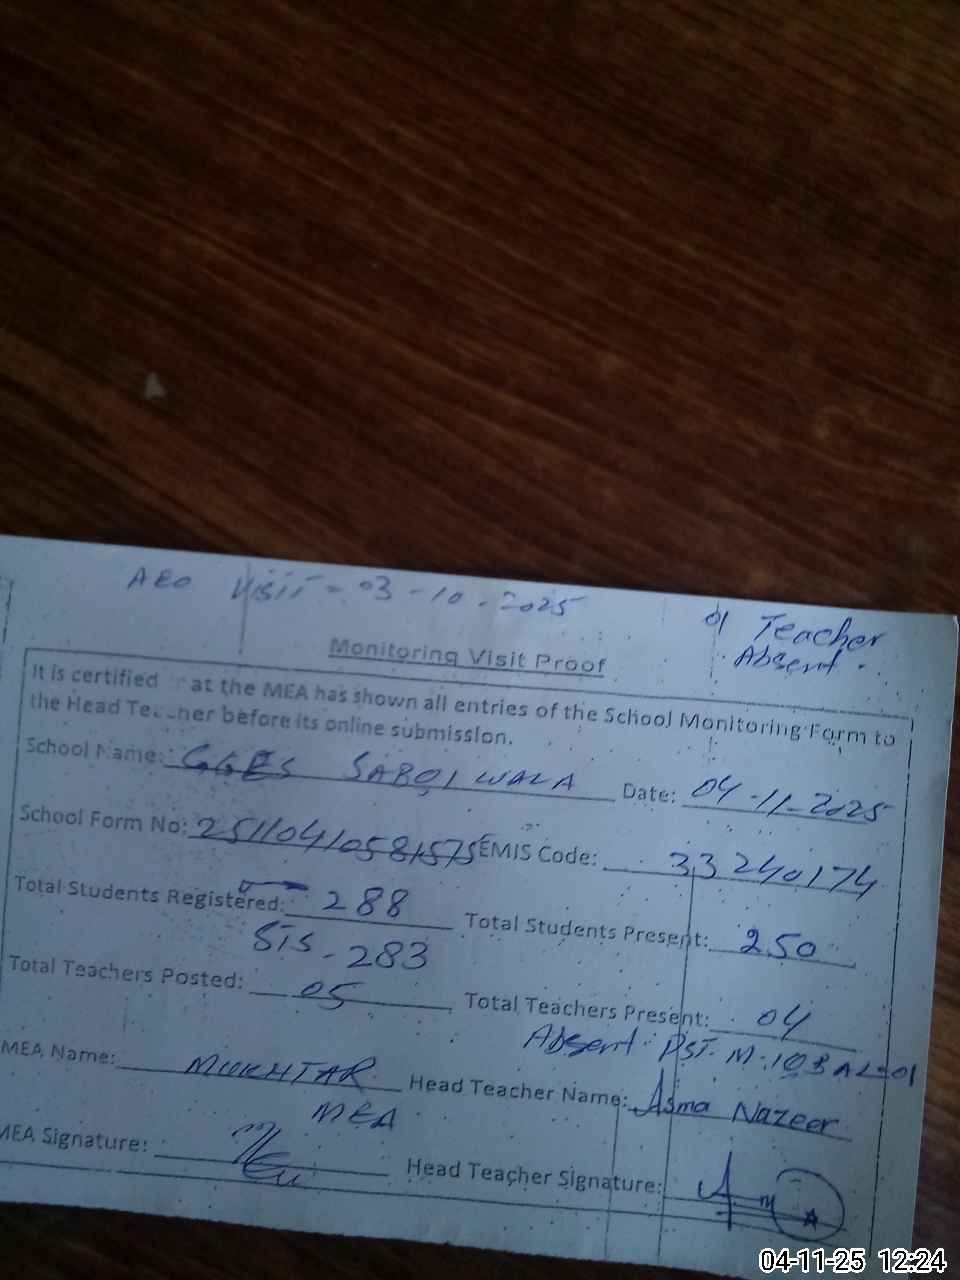 AEO Visit = 03-10-2025
01 Teacher
Absent.
Monitoring Visit Proof
It is certified at the MEA has shown all entries of the School Monitoring Form to
the Head Te ner before its online submission.
School Name: GGES SABOI WALA Date: 04-11-2025
School Form No: EMIS Code: 33240174
Total Students Registered: 288 Total Students Present: 250
SIS - 283
Total Teachers Posted: 05 Total Teachers Present: 04
Absent PST M:
MEA Name: MUKHTAR Head Teacher Name: Asma Nazeer
MEA
MEA Signature: Head Teacher Signature:
04-11-25 12:24